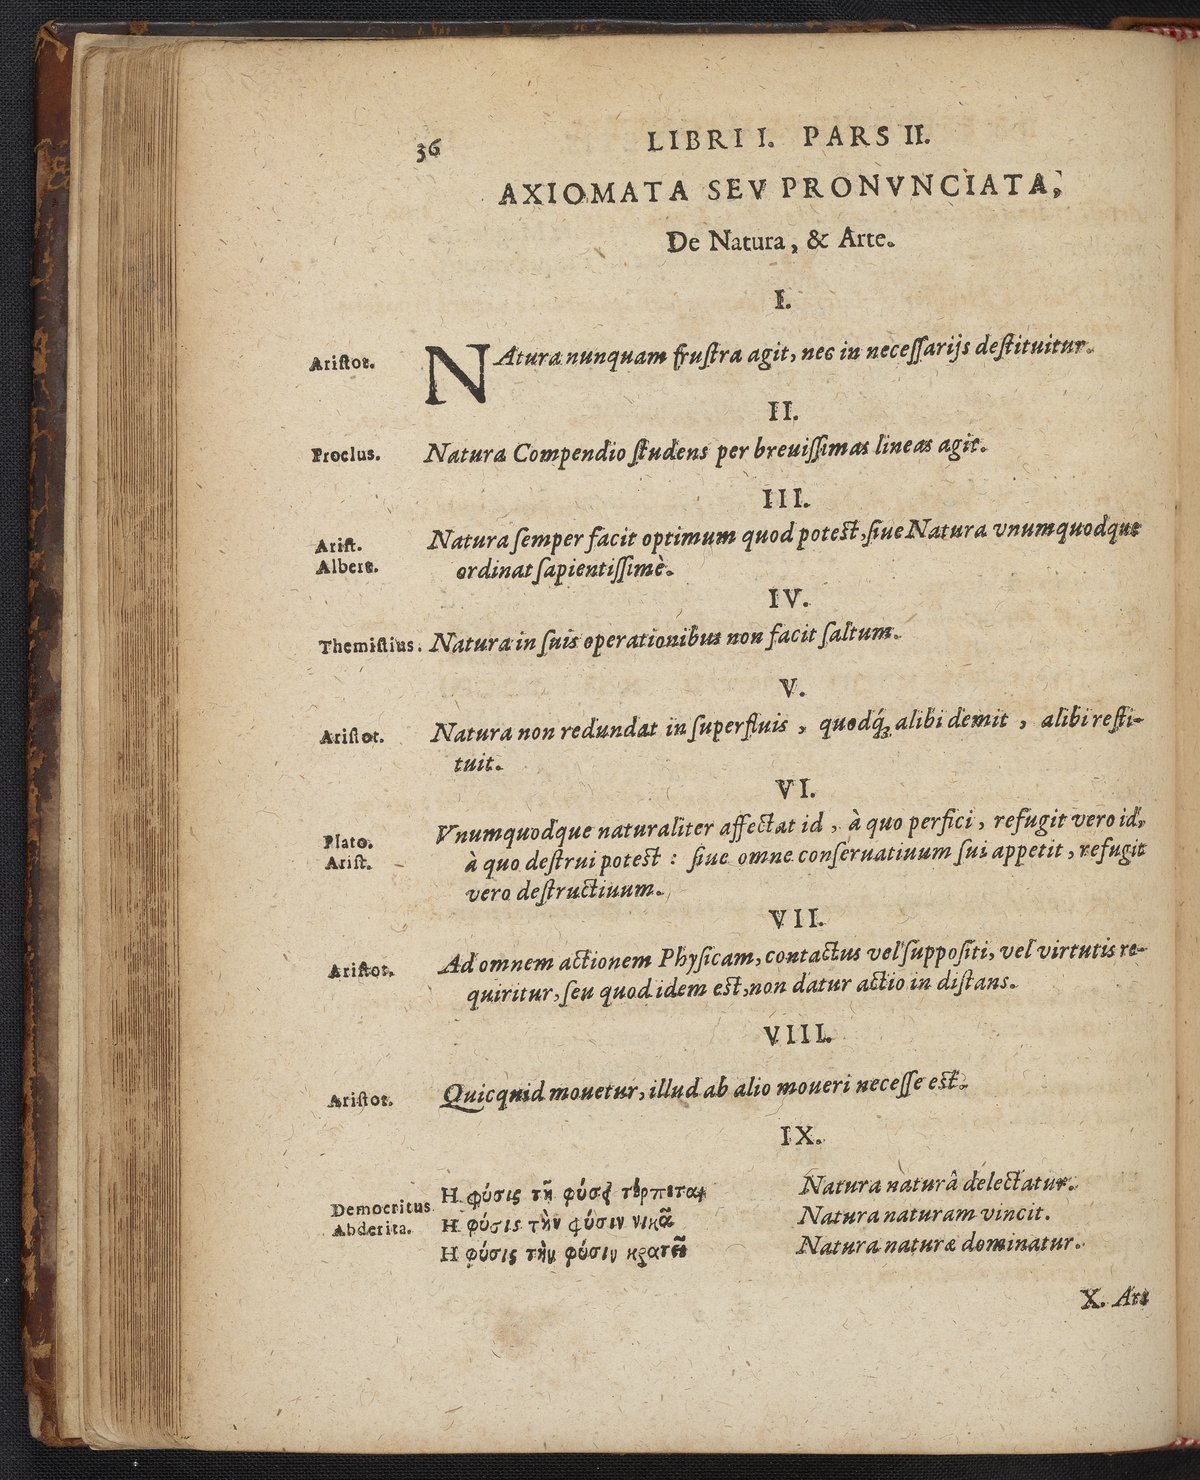 36
LIBRI I. PARS II.
AXIOMATA SEV PRONVNCIATA,
De Natura, & Arte.
I.
Aristot.
NAtura nunquam frustra agit, nec in necessarijs destituitur.
II.
Proclus.
Natura Compendio studens per breuissimas lineas agit.
III.
Arist.
Albert.
Natura semper facit optimum quod potest, siue Natura vnumquodque
ordinat sapientissimè.
IV.
Themistius.
Natura in suis operationibus non facit saltum.
V.
Aristot.
Natura non redundat in superfluis, quodq́; alibi demit, alibi resti-
tuit.
VI.
Plato.
Arist.
Vnumquodque naturaliter affectat id, à quo perfici, refugit vero id,
à quo destrui potest: siue omne conseruatiuum sui appetit, refugit
vero destructiuum.
VII.
Aristot.
Ad omnem actionem Physicam, contactus vel suppositi, vel virtutis re-
quiritur, seu quod idem est, non datur actio in distans.
VIII.
Aristot.
Quicquid mouetur, illud ab alio moueri necesse est.
IX.
Democritus
Abderita.
Η φύσις τῇ φύσει τέρπεται Natura naturâ delectatur.
Η φύσις τὴν φύσιν νικᾶ Natura naturam vincit.
Η φύσις τὴν φύσιν κρατεῖ Natura naturæ dominatur.
X. Ars